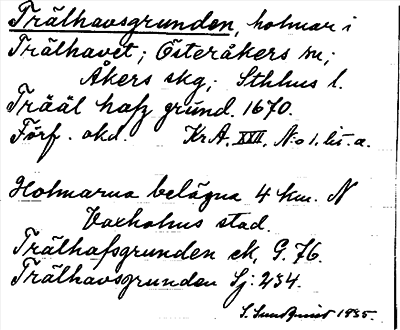 Trälhavsgrunden, holmar i
Trälhavet; Österåkers sn;
Åkers skg; Sthlms l.
Träål hafz grund. 1670.
Förf. okd. KrA. XXII, No 1. lit. a.
Holmarna belägna 4 km. N
Vaxholms stad.
Trälhafsgrunden ek, G. 76.
Trälhavsgrunden Sj: 234.
S. Sundquist 1935.